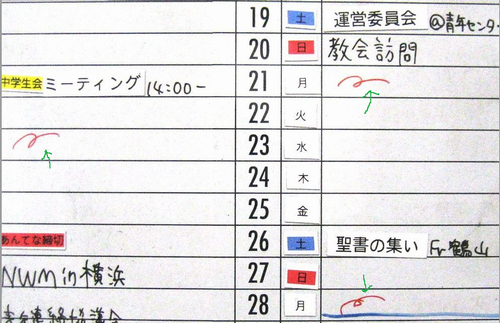 19 土 運営委員会 @青年センター
20 日 教会訪問
中学生会 ミーティング 14:00- 21 月
22 火
23 水
24 木
25 金
あんてな締切 26 土 聖書の集い Fr鶴山
NWM in 横浜 27 日
28 月
連絡協議会